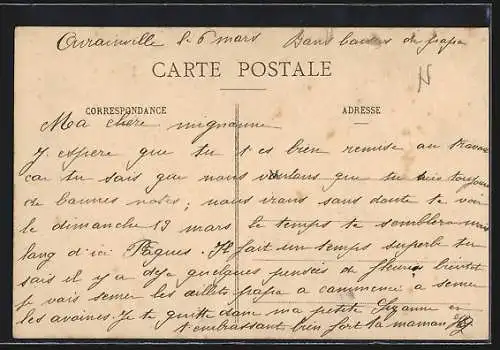 Avrainville le 6 mars Bons baisers de papa
CARTE POSTALE
CORRESPONDANCE
ADRESSE
Ma chere mignonne
J espère que tu t es bien remise au travail
car tu sais que nous voulons que tu aie toujours
de bonnes notes; nous irons sans doute te voir
le dimanche 19 mars le temps te semblera mois
long d'ici Pâques. Il fait un temps superbe tu
sais il y a deja quelques pensées de fleuries bientot
je vais semer les œillets papa a commencé a semer
les avoines. Je te quitte donc ma petite Suzanne en
t embrassant bien fort ta maman